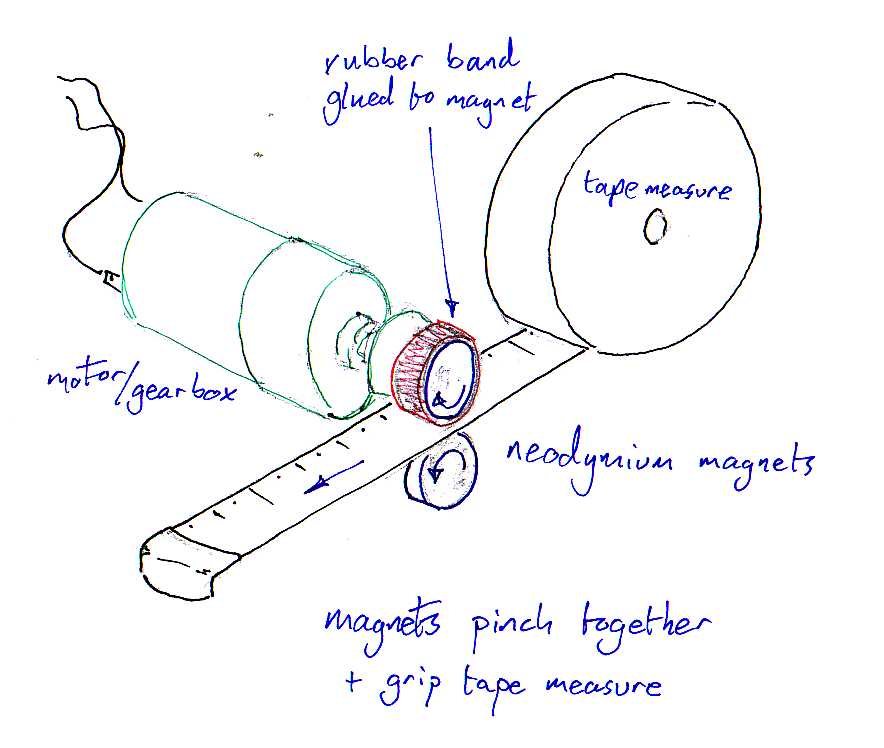 rubber band
glued to magnet
tape measure
motor/gearbox
neodymium magnets
magnets pinch together
+ grip tape measure